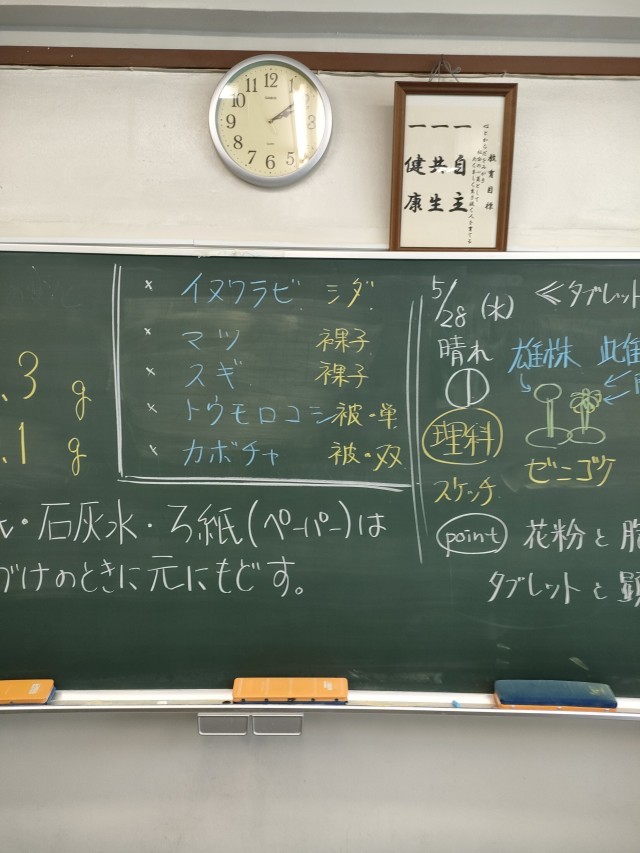 12
1
2
3
4
5
6
7
8
9
10
11
教育目標
一 自主
一 共生
一 健康
.3 g
.1 g
× イヌワラビ シダ
× マツ 裸子
× スギ 裸子
× トウモロコシ 被・単
× カボチャ 被・双
・石灰水・ろ紙(ペーパー)は
づけのときに元にもどす。
5/28 (水) ≪タブレット
晴れ 雄株 雌
①
理科
ゼニゴケ
スケッチ
point 花粉と胞
タブレットと顕